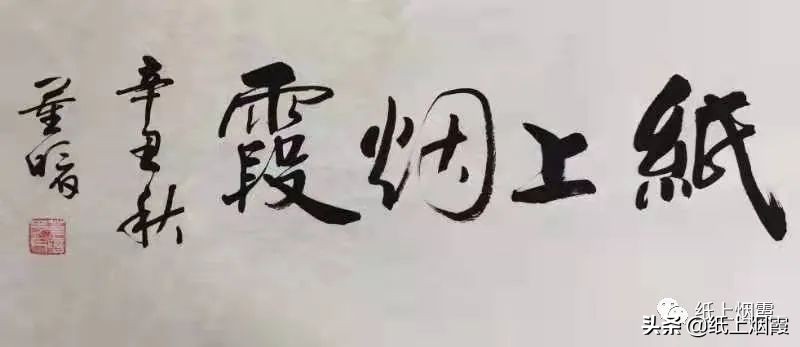 紙上烟霞
辛丑秋
纸上烟霞
头条 @纸上烟霞